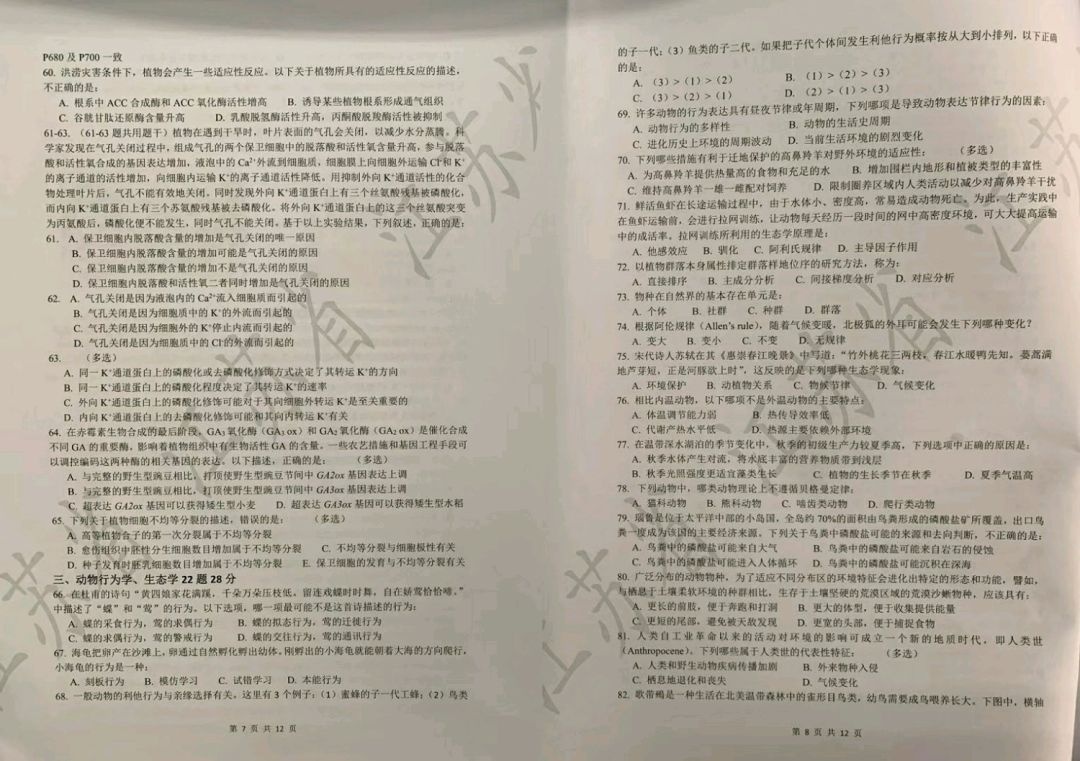 P680 及 P700 一致
60. 洪涝灾害条件下，植物会产生一些适应性反应。以下关于植物所具有的适应性反应的描述，
不正确的是：
A. 根系中 ACC 合成酶和 ACC 氧化酶活性增高 B. 诱导某些植物根系形成通气组织
C. 谷胱甘肽还原酶含量升高 D. 乳酸脱氢酶活性升高，丙酮酸脱羧酶活性被抑制
61-63. （61-63 题共用题干）植物在遇到干旱时，叶片表面的气孔会关闭，以减少水分蒸腾。科
学家发现在气孔关闭过程中，组成气孔的两个保卫细胞中的脱落酸和活性氧含量升高，参与脱落
酸和活性氧合成的基因表达增加，液泡中的 Ca²⁺外流到细胞质，细胞膜上向细胞外运输 Cl⁻和 K⁺
的离子通道的活性增加，向细胞内运输 K⁺的离子通道活性降低。用抑制外向 K⁺通道活性的化合
物处理叶片后，气孔不能有效地关闭。同时发现外向 K⁺通道蛋白上有三个丝氨酸残基被磷酸化，
而内向 K⁺通道蛋白上有三个苏氨酸残基被去磷酸化。将外向 K⁺通道蛋白上的这三个丝氨酸突变
为丙氨酸后，磷酸化便不能发生，同时气孔不能关闭。基于以上实验结果，下列叙述，正确的是：
61. A. 保卫细胞内脱落酸含量的增加是气孔关闭的唯一原因
B. 保卫细胞内脱落酸含量的增加可能是气孔关闭的原因
C. 保卫细胞内脱落酸含量的增加不是气孔关闭的原因
D. 保卫细胞内脱落酸和活性氧二者同时增加是气孔关闭的原因
62. A. 气孔关闭是因为液泡内的 Ca²⁺流入细胞质而引起的
B. 气孔关闭是因为细胞质中的 K⁺的外流而引起的
C. 气孔关闭是因为细胞外的 K⁺停止内流而引起的
D. 气孔关闭是因为细胞质中的 Cl⁻的外流而引起的
63. （多选）
A. 同一 K⁺通道蛋白上的磷酸化或去磷酸化修饰方式决定了其转运 K⁺的方向
B. 同一 K⁺通道蛋白上的磷酸化程度决定了其转运 K⁺的速率
C. 外向 K⁺通道蛋白上的磷酸化修饰可能对于其向细胞外转运 K⁺是至关重要的
D. 内向 K⁺通道蛋白上的去磷酸化修饰可能和其向内转运 K⁺有关
64. 在赤霉素生物合成的最后阶段，GA₃ 氧化酶（GA₃ ox）和 GA₂ 氧化酶（GA₂ ox）是催化合成
不同 GA 的重要酶，影响着植物组织中有生物活性 GA 的含量。一些农艺措施和基因工程手段可
以调控编码这两种酶的相关基因的表达。以下描述，正确的是： （多选）
A. 与完整的野生型豌豆相比，打顶使野生型豌豆节间中 GA2ox 基因表达上调
B. 与完整的野生型豌豆相比，打顶使野生型豌豆节间中 GA3ox 基因表达上调
C. 超表达 GA2ox 基因可以获得矮生型小麦 D. 超表达 GA3ox 基因可以获得矮生型水稻
65. 下列关于植物细胞不均等分裂的描述，错误的是： （多选）
A. 高等植物合子的第一次分裂属于不均等分裂
B. 愈伤组织中胚性分生细胞数目增加属于不均等分裂 C. 不均等分裂与细胞极性有关
D. 种子发育时胚乳细胞数目增加属于不均等分裂 E. 保卫细胞的发育与不均等分裂有关
三、动物行为学、生态学 22 题 28 分
66. 在杜甫的诗句“黄四娘家花满蹊，千朵万朵压枝低。留连戏蝶时时舞，自在娇莺恰恰啼。”
中描述了“蝶”和“莺”的行为。以下选项，哪一项最可能不是这首诗描述的行为：
A. 蝶的采食行为，莺的求偶行为 B. 蝶的拟态行为，莺的迁徙行为
C. 蝶的求偶行为，莺的警戒行为 D. 蝶的交往行为，莺的通讯行为
67. 海龟把卵产在沙滩上，卵通过自然孵化孵出幼体。刚孵出的小海龟就能朝着大海的方向爬行，
小海龟的行为是一种：
A. 刻板行为 B. 模仿学习 C. 试错学习 D. 本能行为
68. 一般动物的利他行为与亲缘选择有关。这里有 3 个例子：（1）蜜蜂的子一代工蜂；（2）鸟类
第 7 页 共 12 页
的子一代；（3）鱼类的子二代。如果把子代个体间发生利他行为概率按从大到小排列，以下正确
的是：
A. （3）>（1）>（2） B. （1）>（2）>（3）
C. （3）>（2）>（1） D. （2）>（1）>（3）
69. 许多动物的行为表达具有昼夜节律或年周期，下列哪项是导致动物表达节律行为的因素：
A. 动物行为的多样性 B. 动物的生活史周期
C. 进化历史上环境的周期波动 D. 当前生活环境的剧烈变化
70. 下列哪些措施有利于迁地保护的高鼻羚羊对野外环境的适应性： （多选）
A. 为高鼻羚羊提供热量高的食物和充足的水 B. 增加围栏内地形和植被类型的丰富性
C. 维持高鼻羚羊一雄一雌配对饲养 D. 限制圈养区域内人类活动以减少对高鼻羚羊干扰
71. 鲜活鱼虾在长途运输过程中，由于水体小、密度高，常易造成动物死亡。为此，生产实践中
在鱼虾运输前，会进行拉网训练，让动物每天经历一段时间的网中高密度环境，可大大提高运输
中的成活率。拉网训练所利用的生态学原理是：
A. 他感效应 B. 驯化 C. 阿利氏规律 D. 主导因子作用
72. 以植物群落本身属性排定群落样地位序的研究方法，称为：
A. 直接排序 B. 主成分分析 C. 间接梯度分析 D. 对应分析
73. 物种在自然界的基本存在单元是：
A. 个体 B. 社群 C. 种群 D. 群落
74. 根据阿伦规律（Allen's rule），随着气候变暖，北极狐的外耳可能会发生下列哪种变化？
A. 变大 B. 变小 C. 不变 D. 无规律
75. 宋代诗人苏轼在其《惠崇春江晚景》中写道：“竹外桃花三两枝，春江水暖鸭先知。蒌蒿满
地芦芽短，正是河豚欲上时”，这反映的是下列哪种生态学现象：
A. 环境保护 B. 动植物关系 C. 物候节律 D. 气候变化
76. 相比内温动物，以下哪项不是外温动物的主要特点：
A. 体温调节能力弱 B. 热传导效率低
C. 代谢产热水平低 D. 热源主要依赖外部环境
77. 在温带深水湖泊的季节变化中，秋季的初级生产力较夏季高，下列选项中正确的原因是：
A. 秋季水体产生对流，将水底丰富的营养物质带到浅层
B. 秋季光照强度更适宜藻类生长 C. 植物的生长季节在秋季 D. 夏季气温高
78. 下列动物中，哪类动物理论上不遵循贝格曼定律：
A. 猫科动物 B. 熊科动物 C. 啮齿类动物 D. 爬行类动物
79. 瑙鲁是位于太平洋中部的小岛国，全岛约 70%的面积由鸟粪形成的磷酸盐矿所覆盖，出口鸟
粪一度成为该国的主要经济来源。下列关于鸟粪中磷酸盐可能的来源和去向判断，不正确的是：
A. 鸟粪中的磷酸盐可能来自大气 B. 鸟粪中的磷酸盐可能来自岩石的侵蚀
C. 鸟粪中的磷酸盐可能进入人体循环 D. 鸟粪中的磷酸盐可能沉积在深海
80. 广泛分布的动物物种，为了适应不同分布区的环境特征会进化出特定的形态和功能，譬如，
与栖息于土壤柔软环境的种群相比，生存于土壤坚硬的荒漠区域的荒漠沙蜥物种，应该具有：
A. 更长的前肢，便于奔跑和打洞 B. 更大的体型，便于收集提供能量
C. 更短的尾部，避免被天敌发现 D. 更宽的头部，便于捕捉食物
81. 人类自工业革命以来的活动对环境的影响可成立一个新的地质时代，即人类世
（Anthropocene）。下列哪些属于人类世的代表性特征： （多选）
A. 人类和野生动物疾病传播加剧 B. 外来物种入侵
C. 栖息地退化和丧失 D. 气候变化
82. 歌带鹀是一种生活在北美温带森林中的雀形目鸟类，幼鸟需要成鸟喂养长大。下图中，横轴
第 8 页 共 12 页